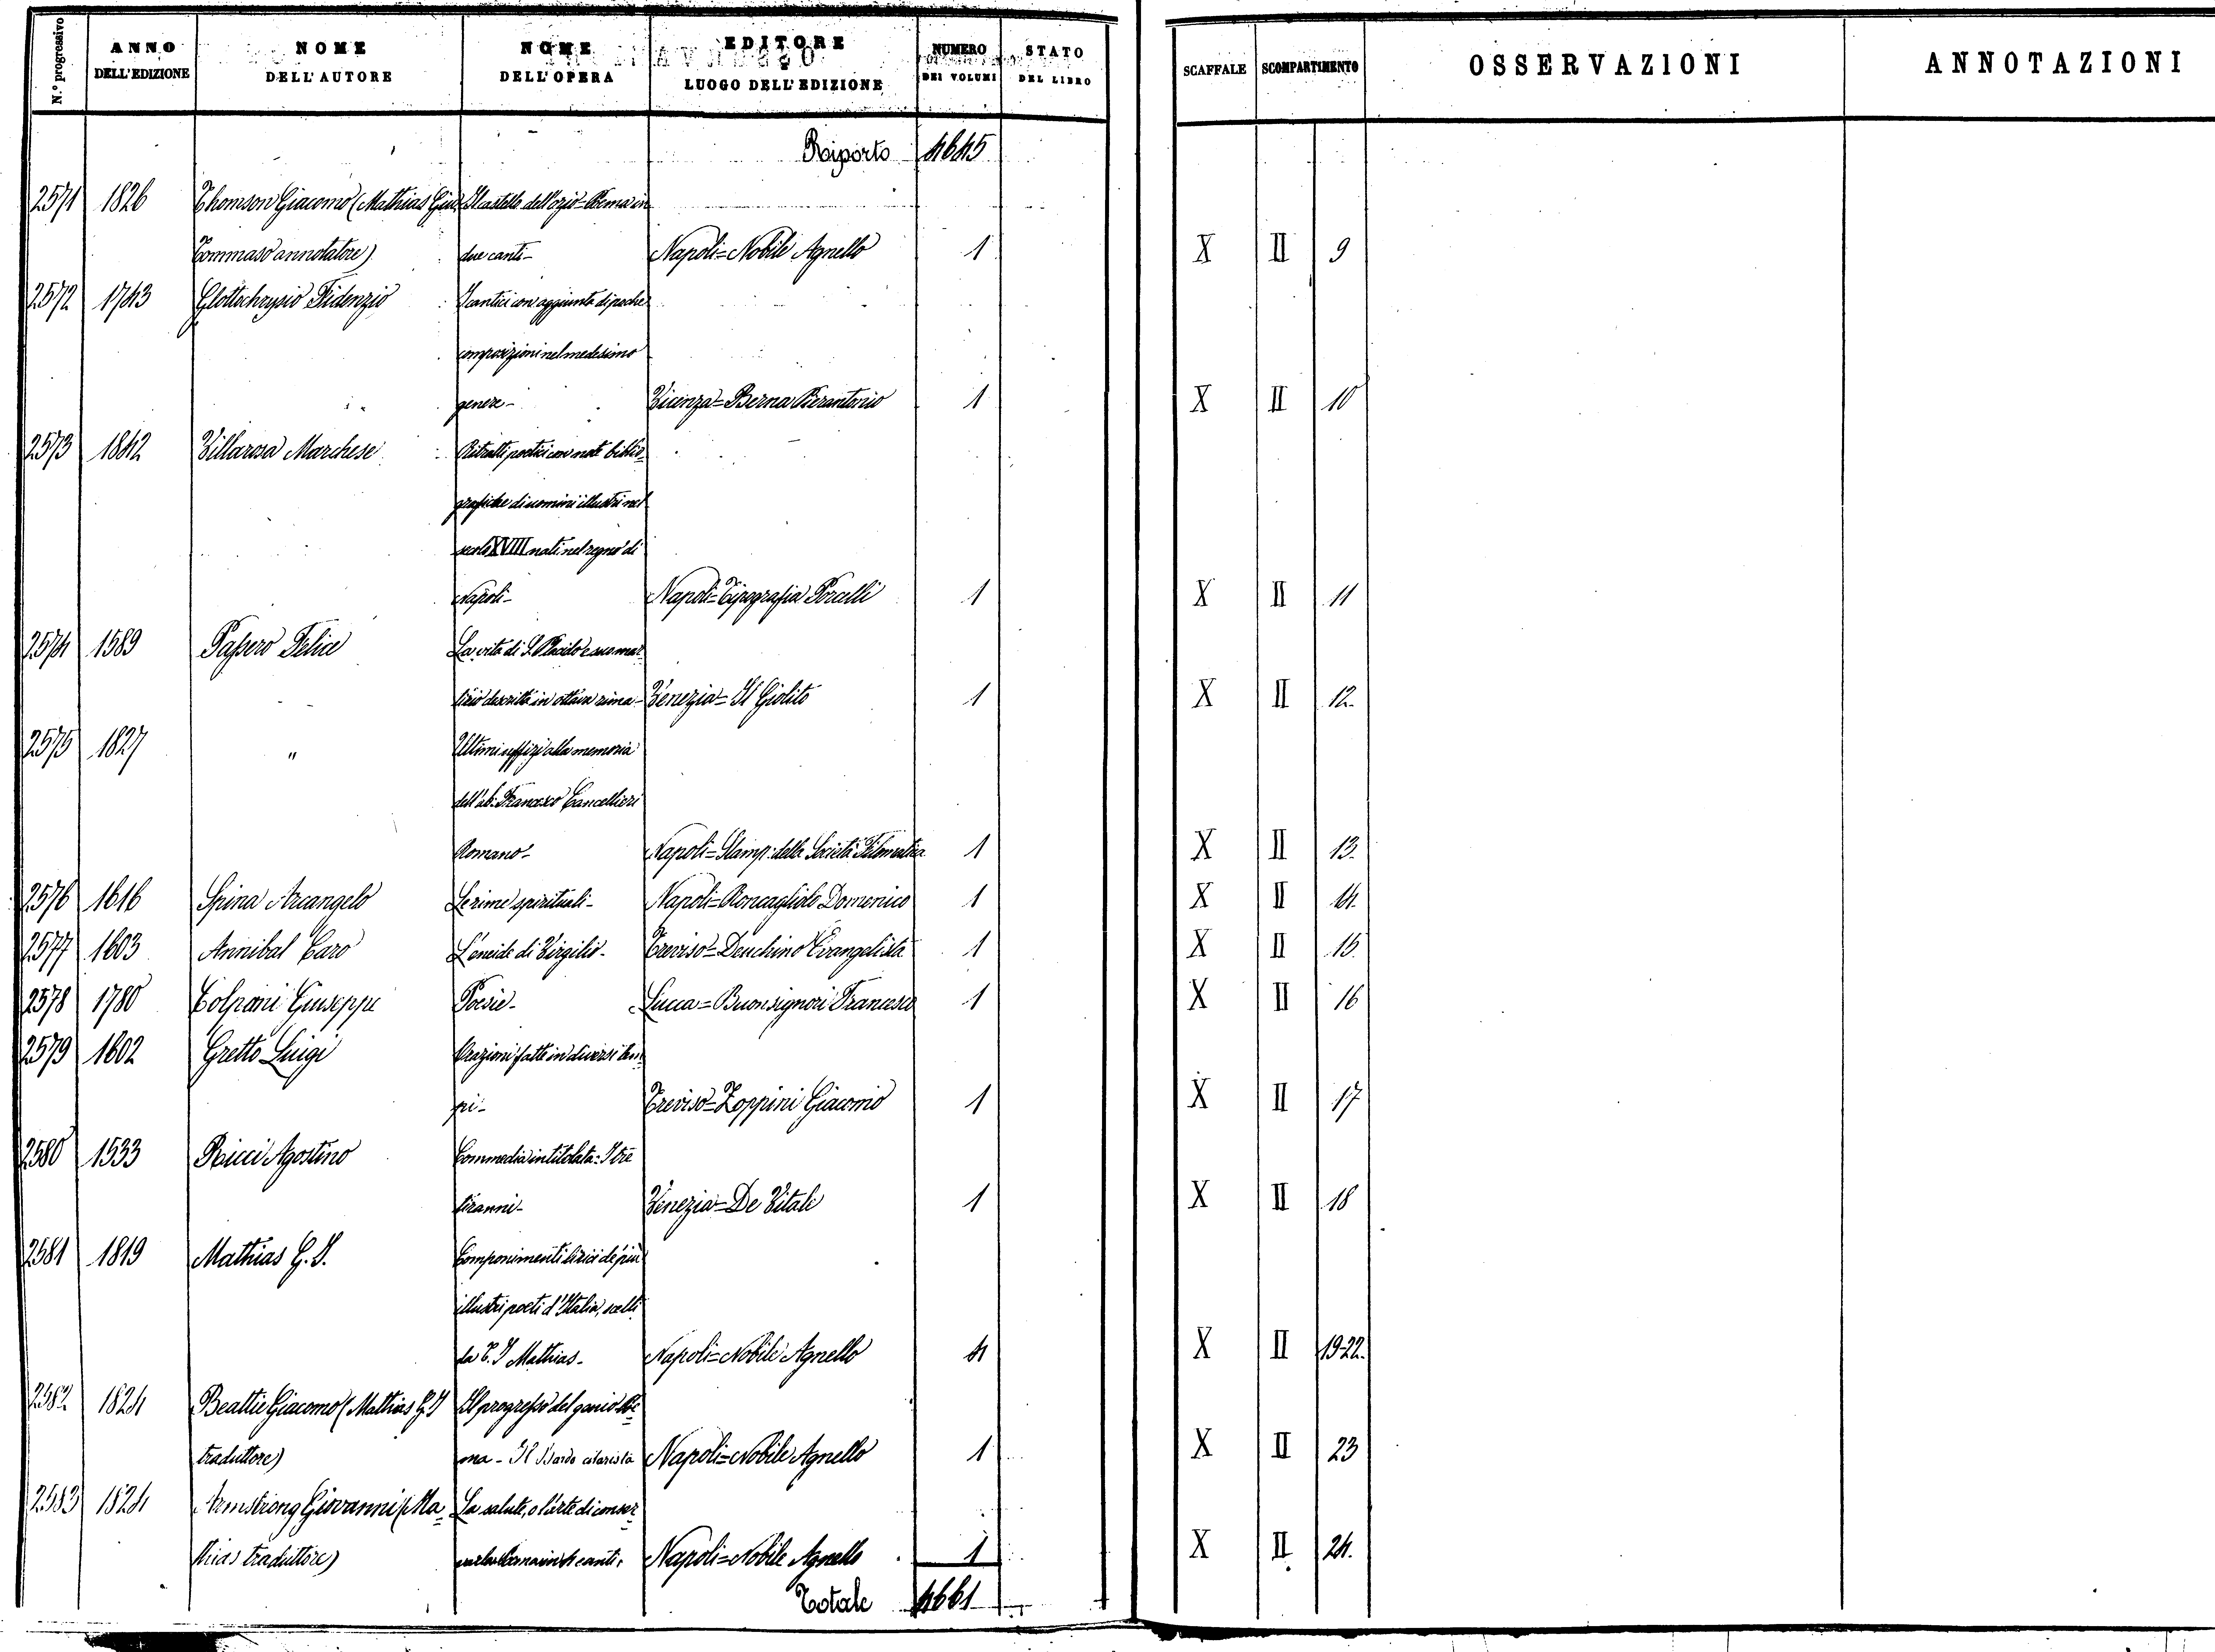 N.° progressivo
ANNO DELL'EDIZIONE
NOME DELL'AUTORE
NOME DELL'OPERA
EDITORE E LUOGO DELL'EDIZIONE
NUMERO DEI VOLUMI
STATO DEL LIBRO
SCAFFALE
SCOMPARTIMENTO
OSSERVAZIONI
ANNOTAZIONI
Riporto 4645
2571 1826 Thomson Giacomo (Mathias Gia: Il castello dell'ozio - Poema in
Tommaso annotatore) due canti - Napoli = Nobile Agnello 1 X II 9
2572 1743 Glottochrysio Fidenzio I cantici con aggiunta di poche
composizioni nel medesimo
genere - Vicenza = Berna Pierantonio 1 X II 10
2573 1842 Villarosa Marchese Ritratti poetici con note biblio=
grafiche di uomini illustri nel
secolo XVIII nati nel regno di
Napoli - Napoli = Tipografia Porcelli 1 X II 11
2574 1589 Passero Felice La vita di S. Placido e suo mar=
tirio descritta in ottava rima - Venezia = Il Giolito 1 X II 12.
2575 1827 " Ultimi uffizi alla memoria
dell'ab: Francesco Cancellieri
Romano - Napoli = Stamp: della Società Filomatica 1 X II 13.
2576 1616 Spina Arcangelo Le rime spirituali - Napoli = Roncagliolo Domenico 1 X II 14.
2577 1603 Annibal Caro L'eneide di Virgilio - Treviso = Deuchino Evangelista 1 X II 15.
2578 1780 Colpani Giuseppe Poesie - Lucca = Buonsignori Francesco 1 X II 16
2579 1602 Gretto Luigi Orazioni fatte in diversi tem=
pi - Treviso = Zoppini Giacomo 1 X II 17
2580 1533 Ricci Agostino Commedia intitolata: I tre
tiranni - Venezia = De Vitale 1 X II 18
2581 1819 Mathias G. I. Componimenti lirici de' più
illustri poeti d'Italia, scelti
da T. I Mathias - Napoli = Nobile Agnello 4 X II 19-22.
2582 1824 Beattie Giacomo (Mathias G. I Il progresso del genio Po=
traduttore) ma - Il Bardo citarista Napoli = Nobile Agnello 1 X II 23
2583 1824 Armstrong Giovanni (Ma= La salute, o l'arte di conser=
thias traduttore) varla Poema in 4 canti. Napoli = Nobile Agnello 1 X II 24.
Totale 4661